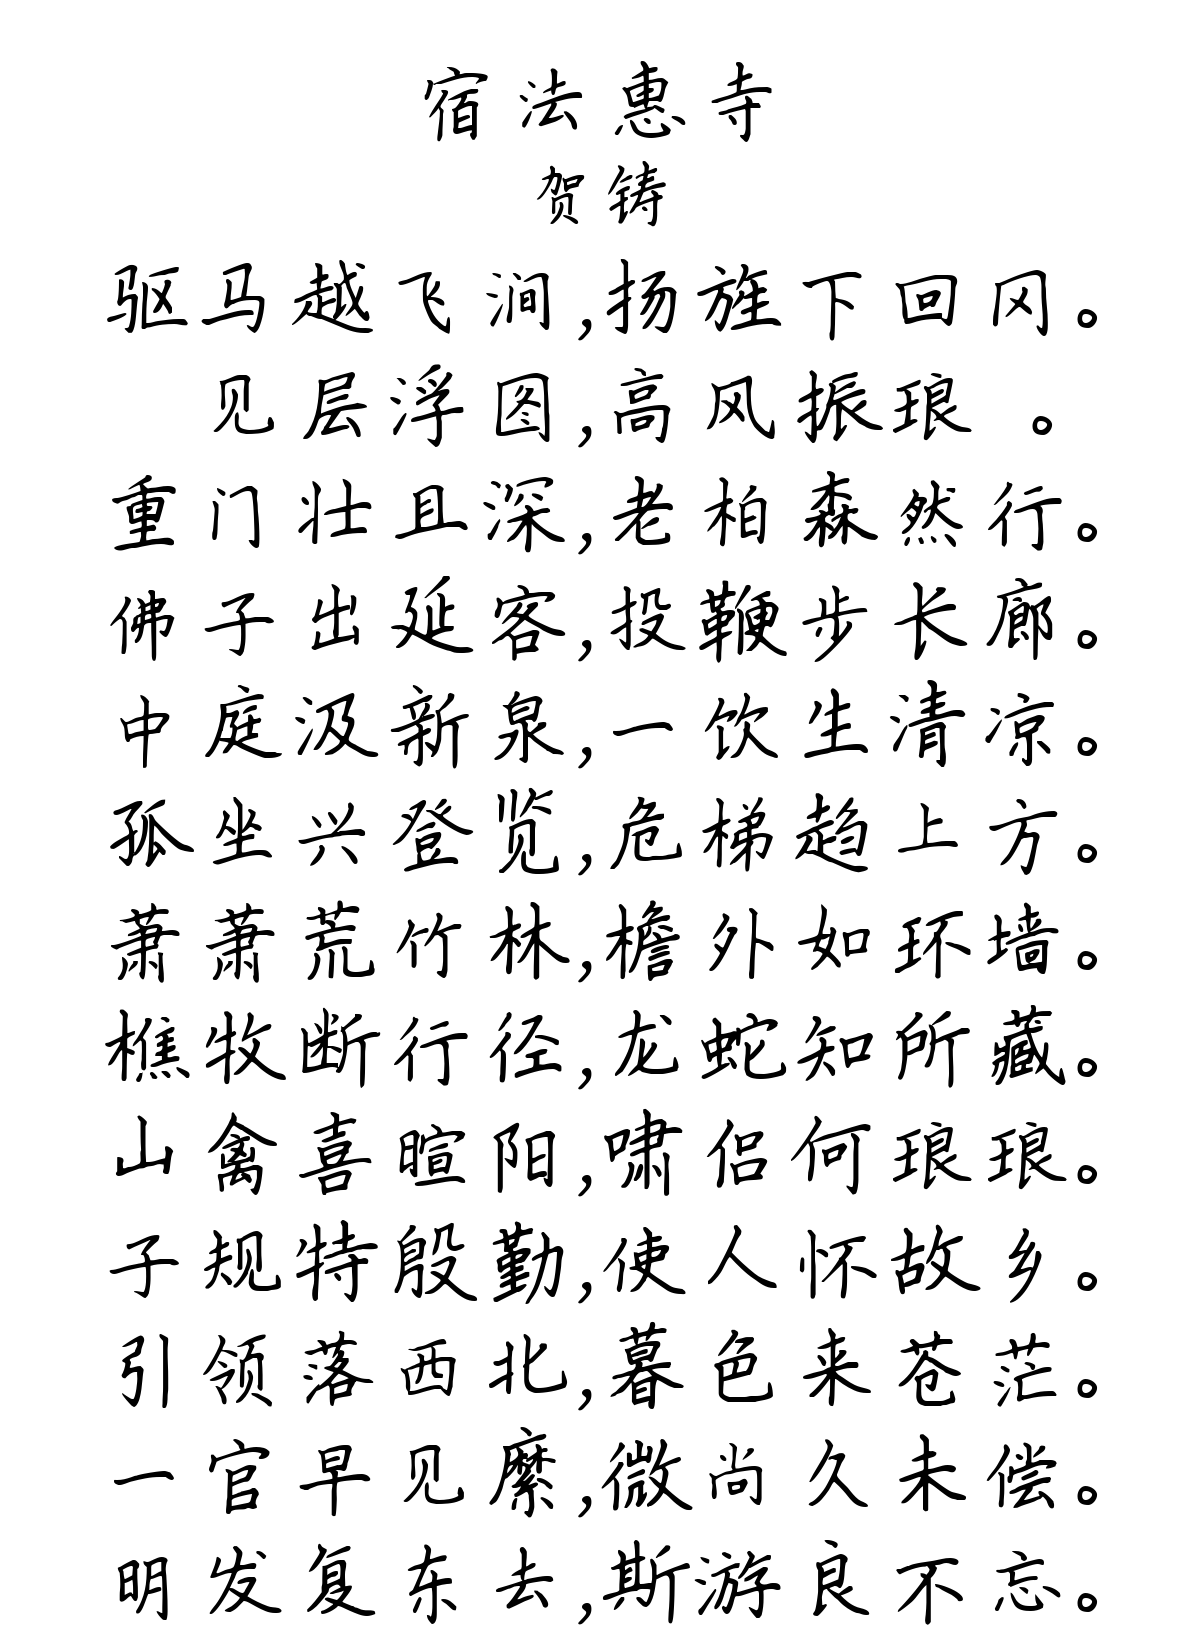 宿法惠寺
贺铸
驱马越飞涧,扬旌下回冈。
见层浮图,高风振琅 。
重门壮且深,老柏森然行。
佛子出延客,投鞭步长廊。
中庭汲新泉,一饮生清凉。
孤坐兴登览,危梯趋上方。
萧萧荒竹林,檐外如环墙。
樵牧断行径,龙蛇知所藏。
山禽喜暄阳,啸侣何琅琅。
子规特殷勤,使人怀故乡。
引领落西北,暮色来苍茫。
一官早见縻,微尚久未偿。
明发复东去,斯游良不忘。